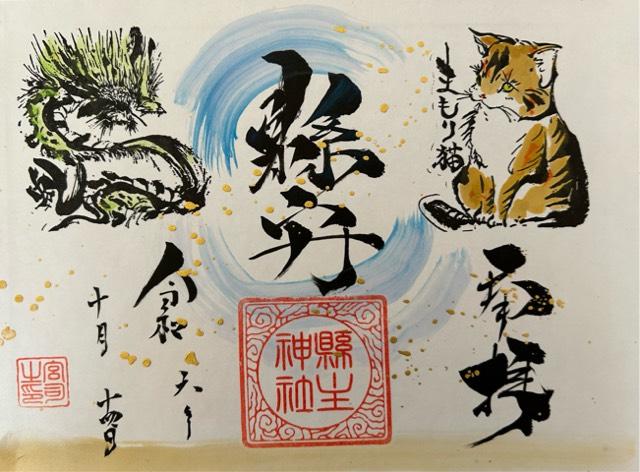 奉拝
まもり猫
縣守
縣主
神社
令和
十月
十四日
宮司
之印